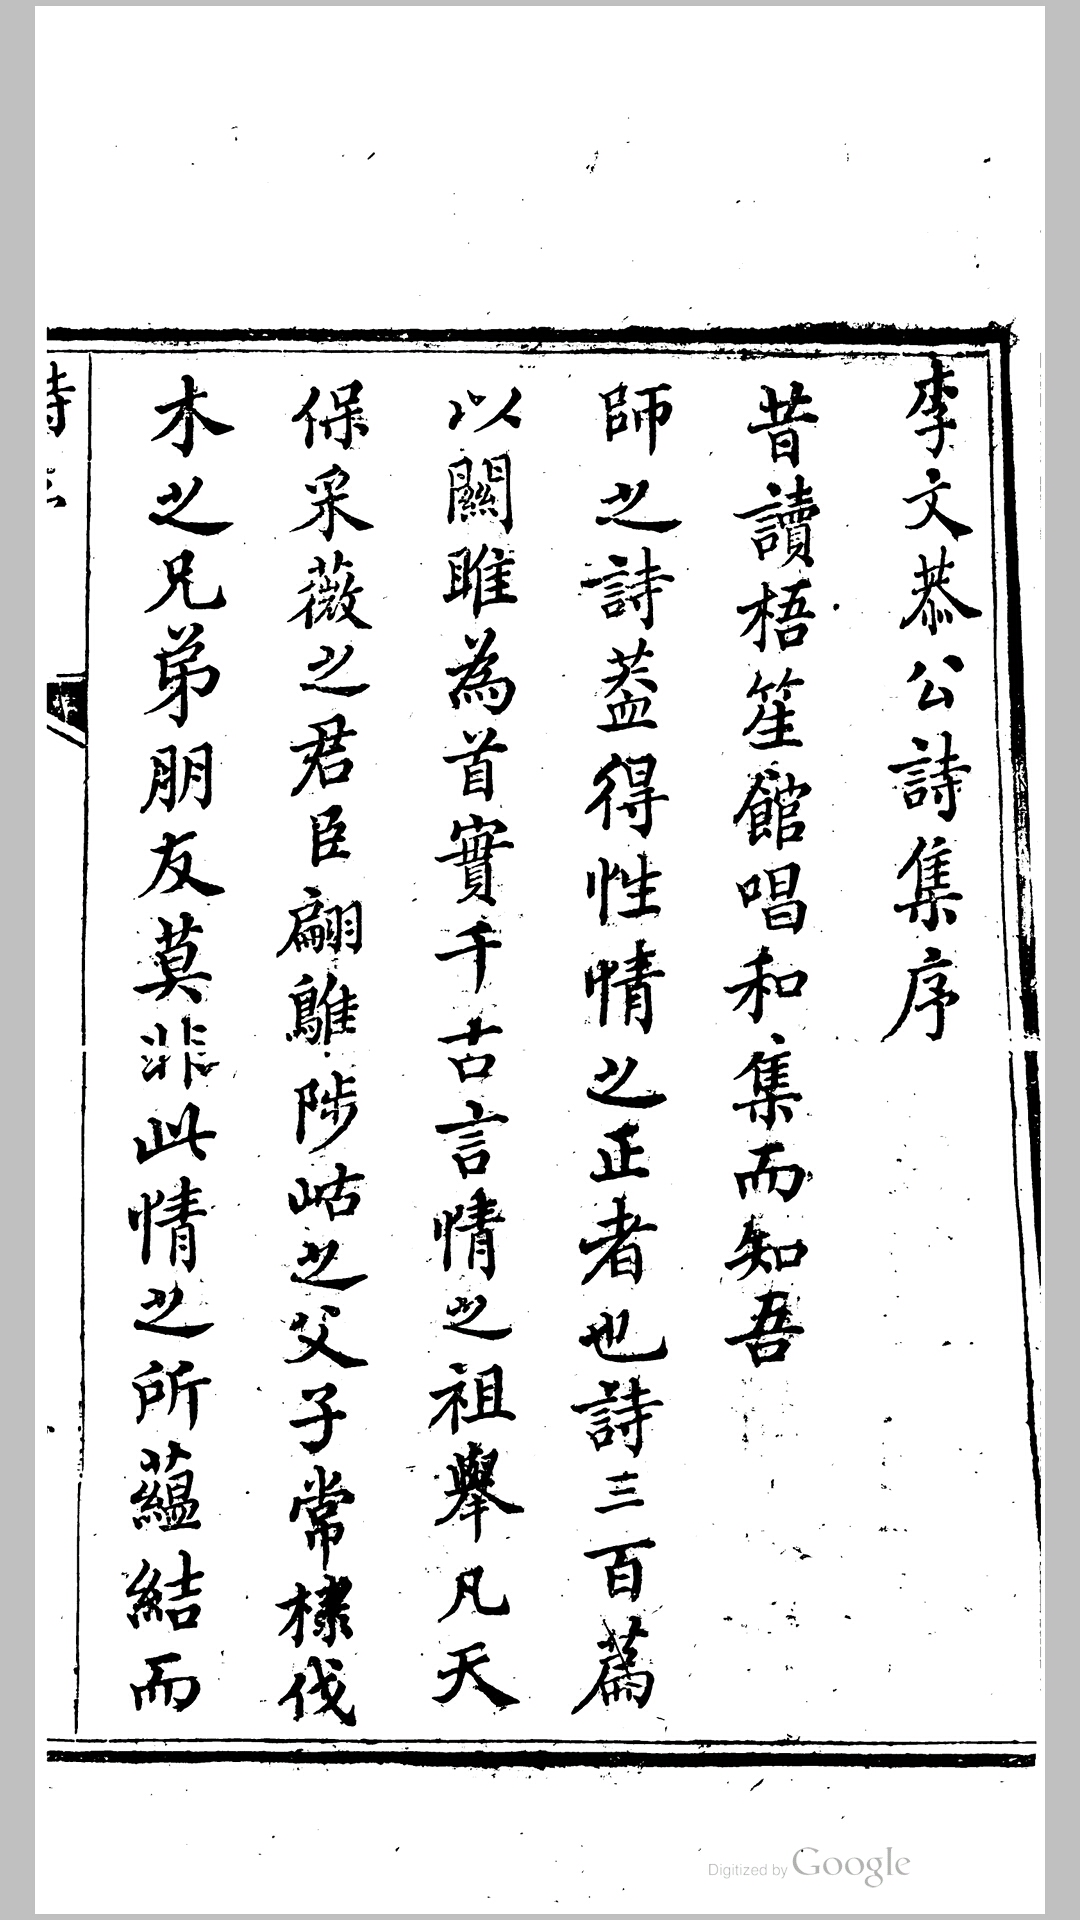 李文恭公詩集序
昔讀梧笙館唱和集而知吾
師之詩葢得性情之正者也詩三百篇
以關雎為首實千古言情之祖舉凡天
保采薇之君臣翩鵻陟岵之父子常棣伐
木之兄弟朋友莫非此情之所蘊結而
Digitized by Google